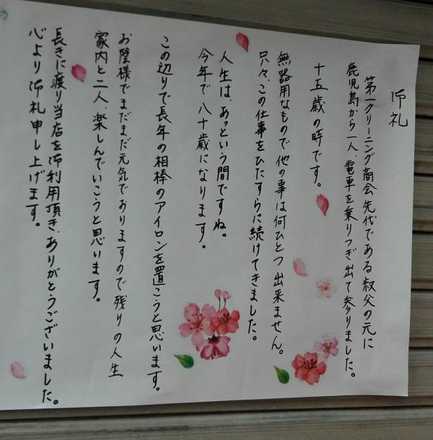 御礼
第一クリーニング商会先代である叔父の元に
鹿児島から一人、電車を乗りつぎ出て参りました。
十五歳の時です。
無器用なもので他の事は何ひとつ出来ません。
只々、この仕事をひたすらに続けてきました。
人生は、あっという間ですね。
今年で八十歳になります。
この辺りで長年の相棒のアイロンを置こうと思います。
お陰様でまだまだ元気でありますので残りの人生
家内と二人、楽しんでいこうと思います。
長きに渡り当店を御利用頂き、ありがとうございました。
心より御礼申し上げます。